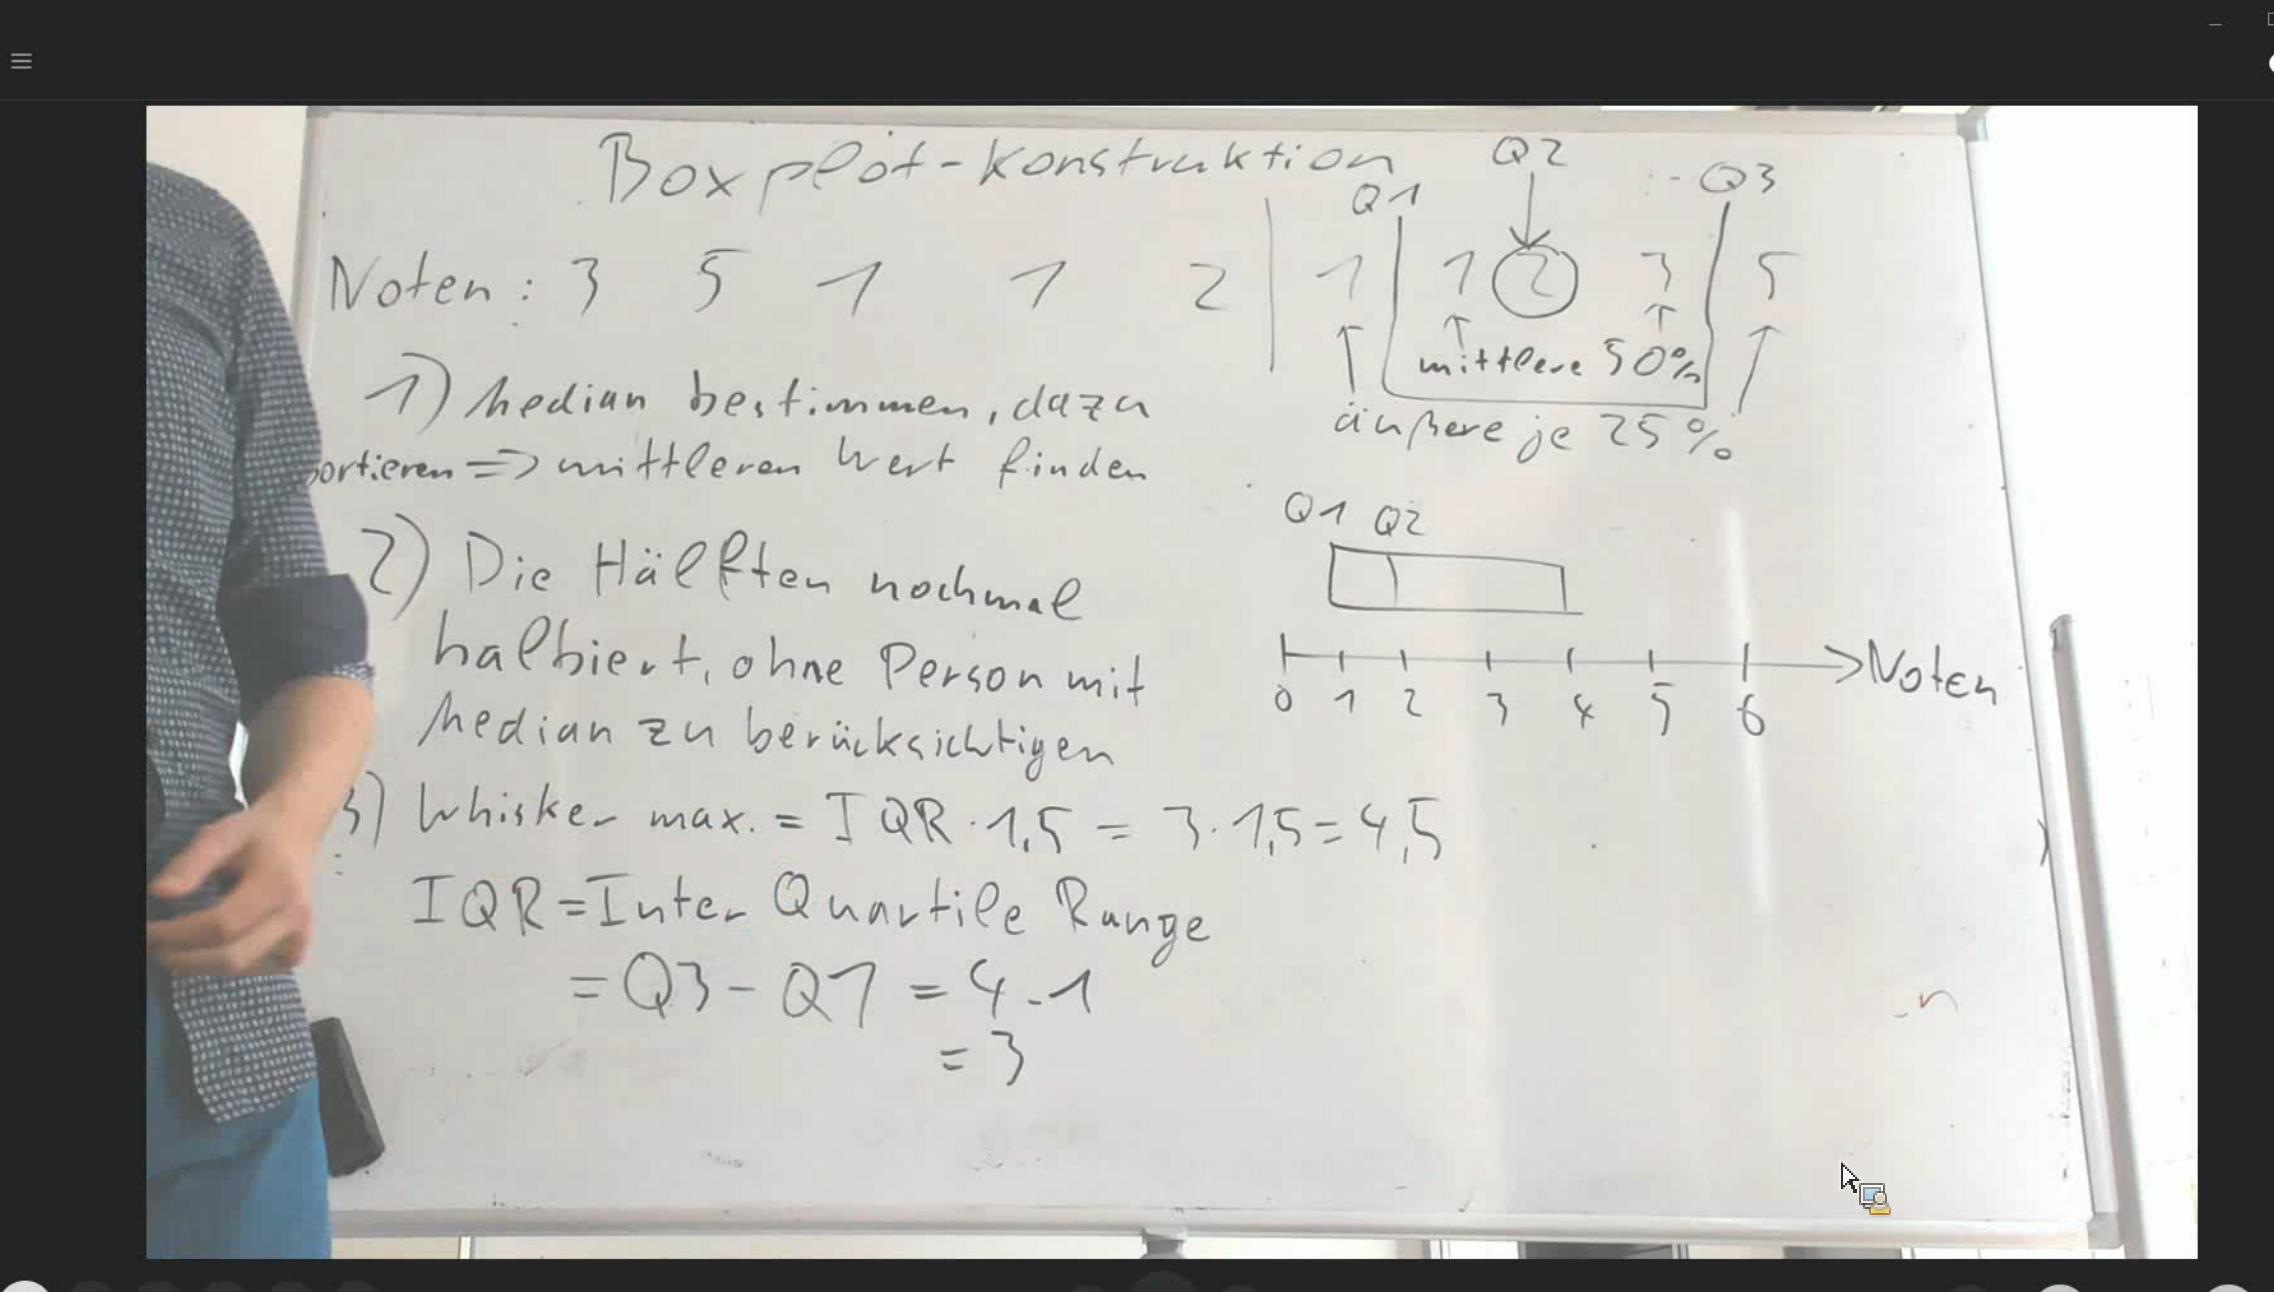 Boxplot-Konstruktion
Noten: 3 5 1 1 2
Q1 Q2 Q3
1 1 2 3 5
mittlere 50%
äußere je 25%
1) Median bestimmen, dazu
sortieren => mittleren Wert finden
2) Die Hälften nochmal
halbiert, ohne Person mit
Median zu berücksichtigen
3) Whisker max. = IQR · 1,5 = 3 · 1,5 = 4,5
IQR = Inter Quartile Range
= Q3 - Q1 = 4 - 1
= 3
Q1 Q2
0 1 2 3 4 5 6
Noten